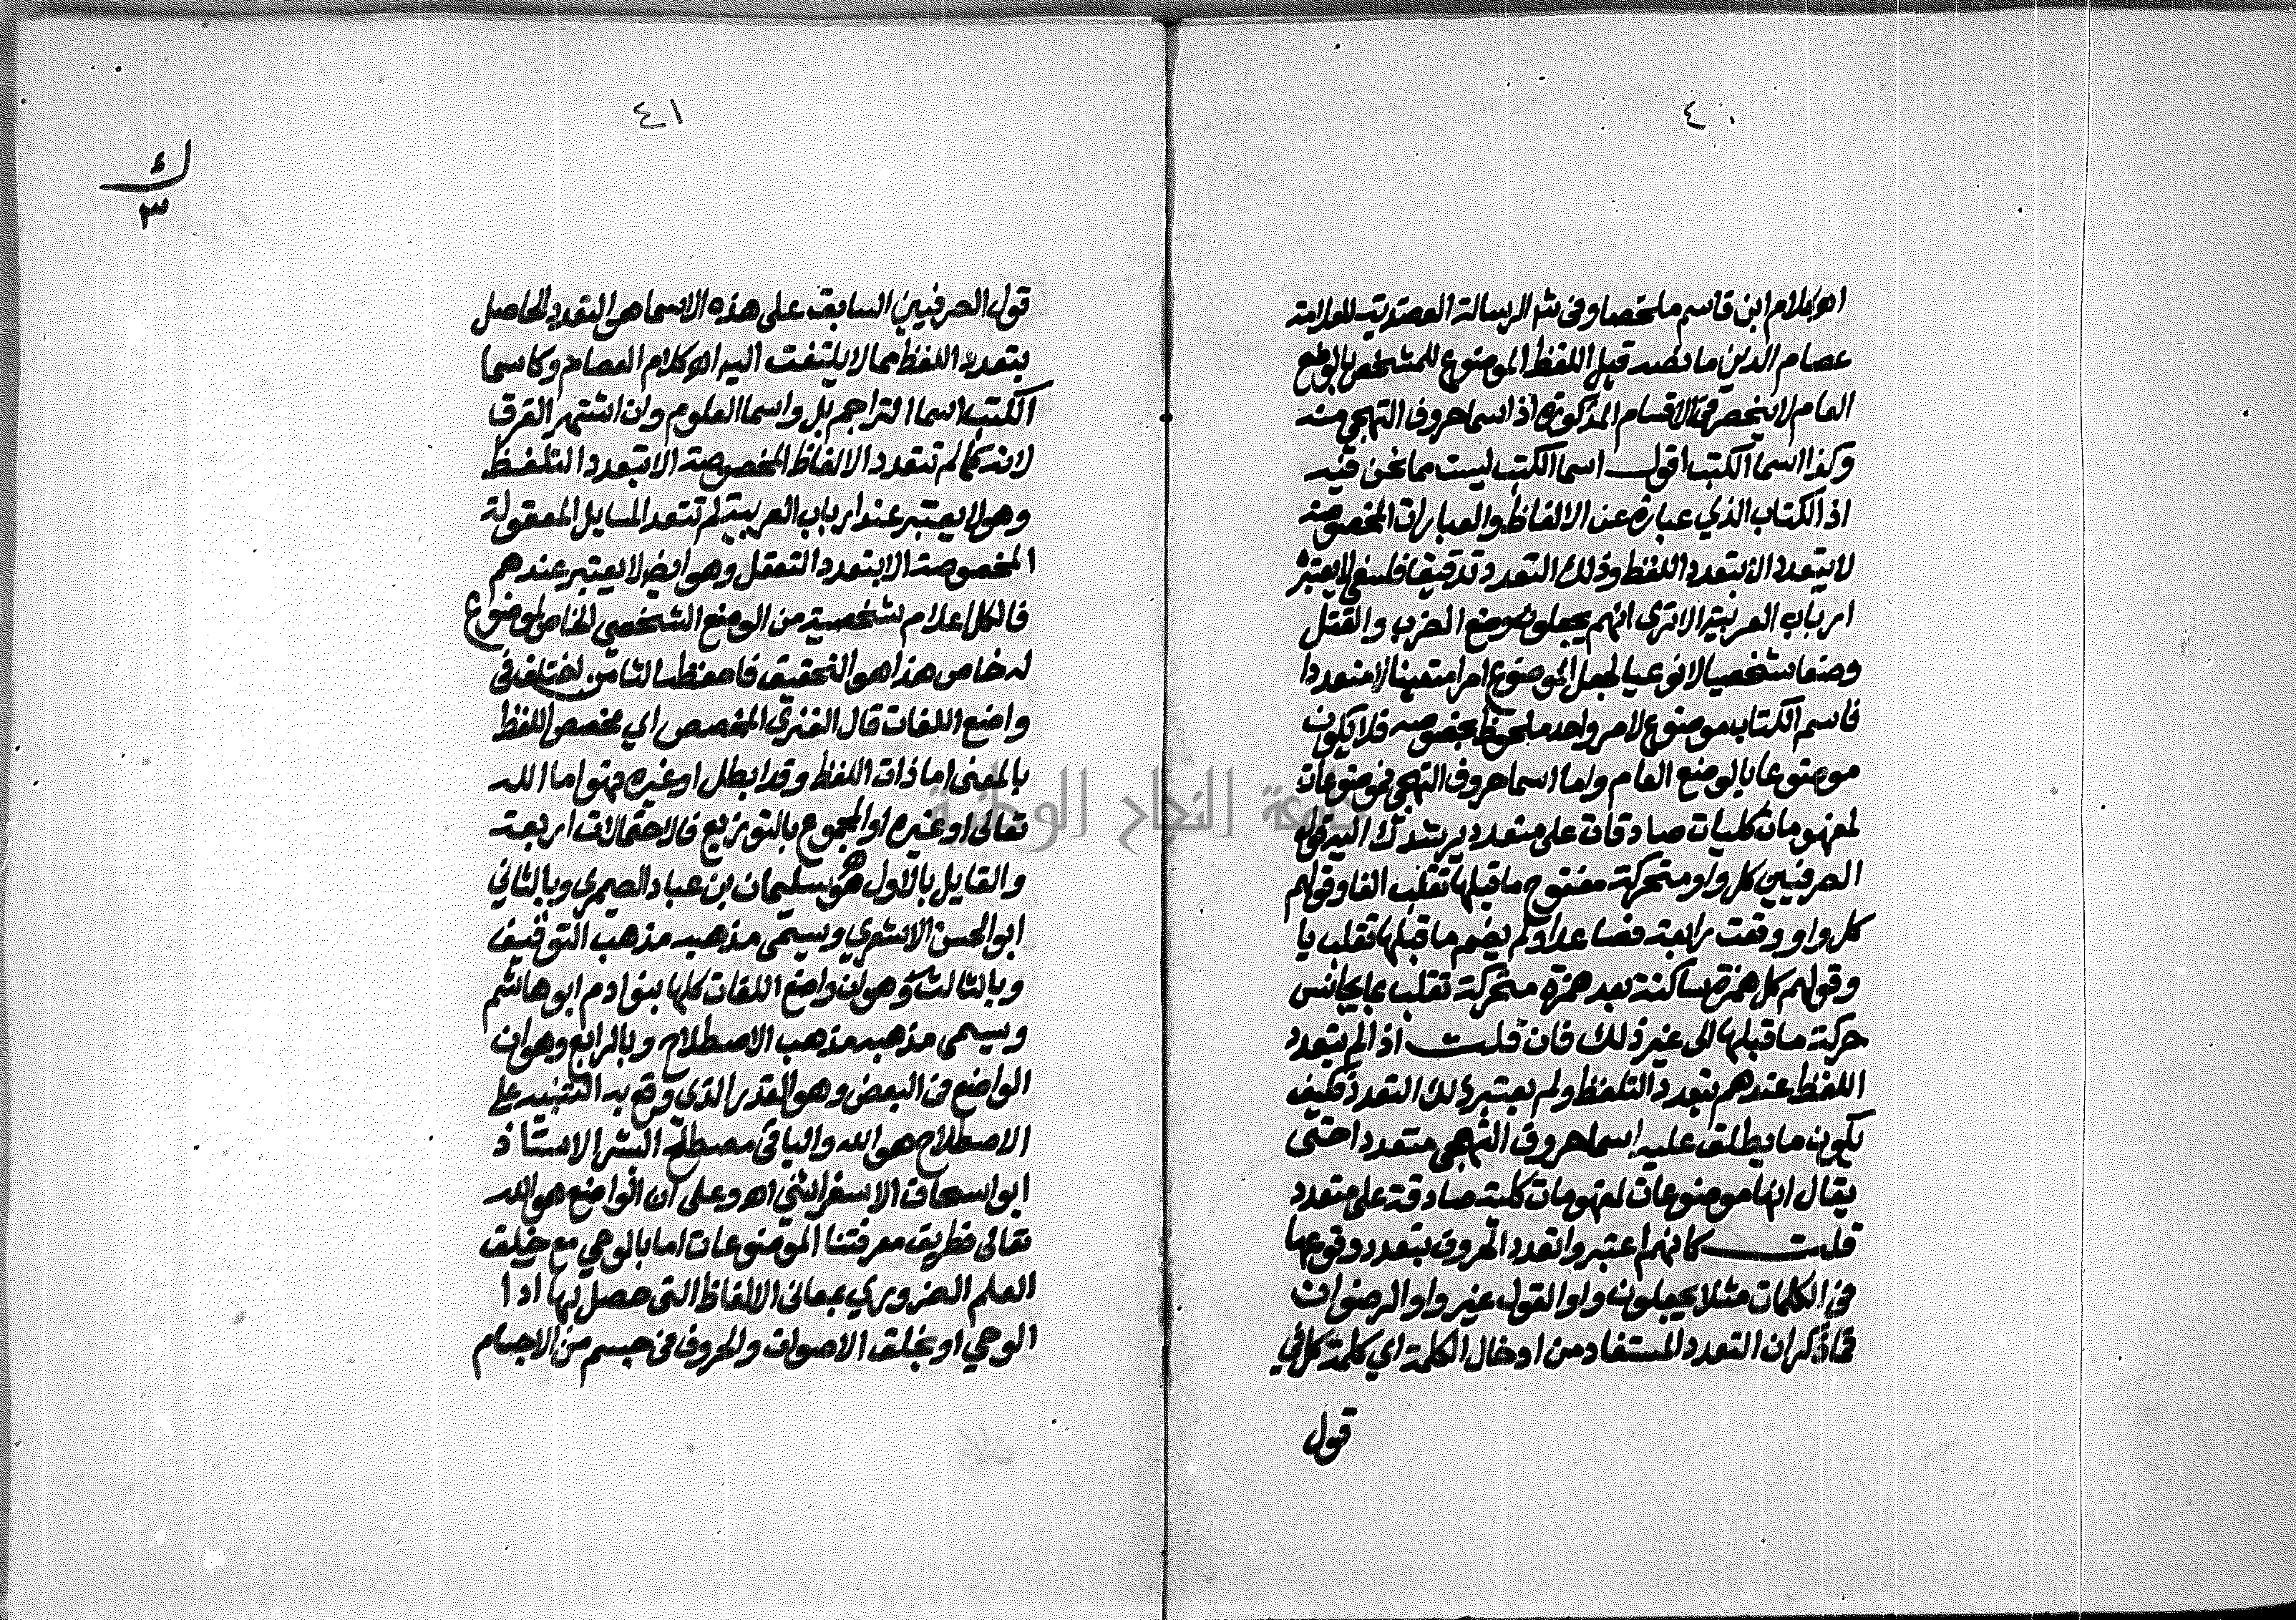 ٤٠
اهـ كلام ابن قاسم ملخصا وفى شر الرسالة العضدية للعلامة
عصام الدين ما نصه قيل اللفظ الموضوع للمشخص بالوضع
العام لا ينحصر في الاقسام المذكورة اذ اسما حروف التهجي منه
وكذا اسما الكتب اقول اسما الكتب ليست مما نحن فيه
اذ الكتاب الذي عبارة عن الالفاظ والعبارات المخصوصة
لا يتعدد الا بتعدد اللفظ وذلك التعدد تدقيق فلسفي لا يعتبره
ارباب العربية الا ترى انهم يجعلون وضع الضرب والقتل
وضعا شخصيا لا نوعيا لجعل الموضوع امرا متعينا لا متعددا
فاسم الكتاب موضوع لامر واحد ملحوظ بخصوصه فلا يكون
موضوعا بالوضع العام واما اسما حروف التهجي فموضوعات
لمفهومات كليات صادقات على متعدد يرشدك اليه قول
الصرفيين كل واو متحركة مفتوح ما قبلها تقلب الفا وقولهم
كل واو وقعت رابعة فصاعدا ولم يضم ما قبلها تقلب يا
وقولهم كل همزة ساكنة بعد همزة متحركة تقلب بما يجانس
حركة ما قبلها الى غير ذلك فان قلت اذا لم يتعدد
اللفظ عندهم بتعدد التلفظ ولم يعتبر ذلك التعدد فكيف
يكون ما يطلق عليه اسما حروف التهجي متعددا حتى
يقال انها موضوعات لمفهومات كلية صادقة على متعدد
قلت كانهم اعتبروا تعدد الحروف بتعدد وقوعها
في الكلمات مثلا يجعلون واو القول غير واو الرضوان
فاذكر ان التعدد المستفاد من ادخال الكلمة اي كلمة كل في
قول
٤١
ك
٣
قول الصرفيين السابق على هذه الاسما هو التعدد الحاصل
بتعدد اللفظ مما لا يلتفت اليه اهـ كلام العصام وكاسما
الكتب اسما التراجم بل واسما العلوم وان اشتهر الفرق
لانه كما لم تتعدد الالفاظ المخصوصة الا بتعدد التلفظ
وهو لا يعتبر عند ارباب العربية لم تتعدد المسايل المعقولة
المخصوصة الا بتعدد التعقل وهو ايض لا يعتبر عندهم
فالكل اعلام شخصية من الوضع الشخصي الخاص لموضوع
له خاص هذا هو التحقيق فاحفظه الثامن اختلف فى
واضع اللغات قال الفنري المخصص اي مخصص اللفظ
بالمعنى اما ذات اللفظ وقد ابطل او غيره وهو اما الله
تعالى او غيره او المجموع بالتوزيع فالاحتمالات اربعة
والقايل بالاول هو سليمان بن عباد الصيمري وبالثاني
ابو الحسن الاشعري ويسمى مذهبه مذهب التوقيف
وبالثالث وهو ان واضع اللغات كلها بنو ادم ابو هاشم
ويسمى مذهبه مذهب الاصطلاح وبالرابع وهو ان
الواضع فى البعض وهو القدر الذي وقع به التنبيه على
الاصطلاح هو الله والباقى مصطلح البشر الاستاذ
ابو اسحاق الاسفرائني اهـ وعلى ان الواضع هو الله
تعالى فطريق معرفتنا الموضوعات اما بالوحي مع خلق
العلم الضروري بمعانى الالفاظ التى حصل بها ادا
الوحي او بخلق الاصوات والحروف فى جسم من الاجسام
جامعة النجاح الوطنية